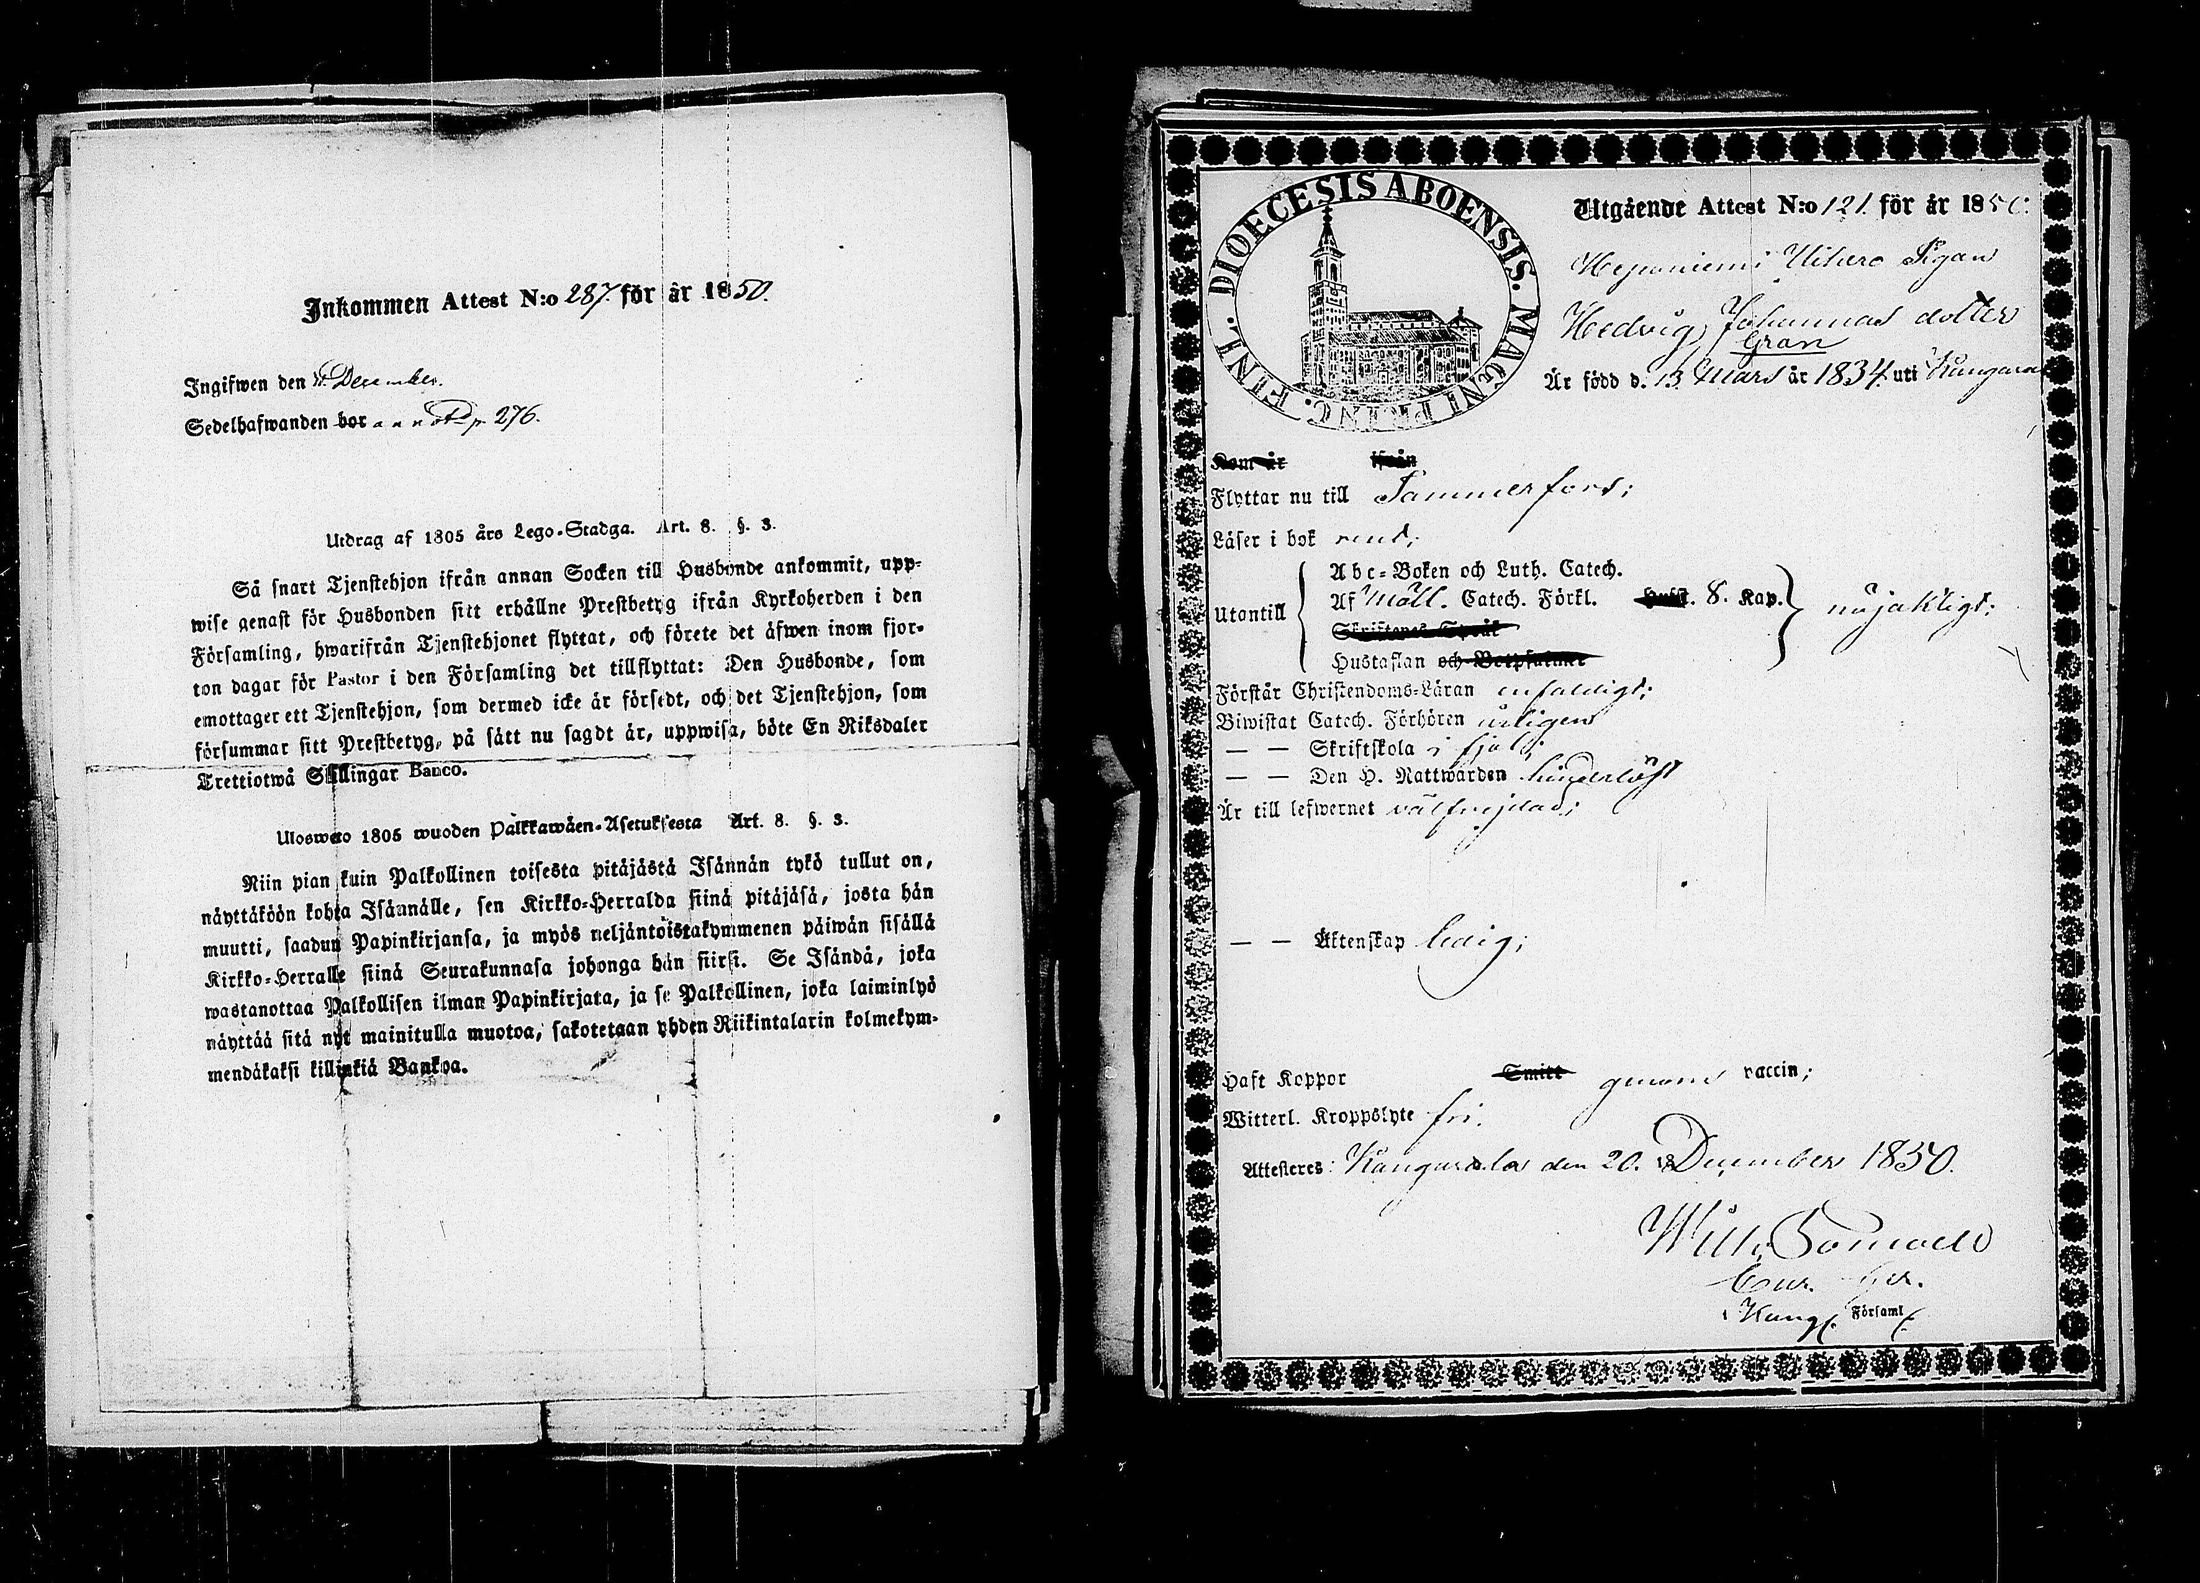 Inkommen Attest N:o 287. för år 1850.
Ingifwen den December.
Sedelhafwanden bor annot. p. 276.
Utdrag af 1805 års Lego-Stadga. Art. 8. §. 3.
Så snart Tjenstehjon ifrån annan Socken till Husbonde ankommit, upp-
wise genast för Husbonden sitt erhållne Prestbetyg ifrån Kyrkoherden i den
Församling, hwarifrån Tjenstehjonet flyttat, och förete det äfwen inom fjor-
ton dagar för Pastor i den Församling det tillflyttat: Den Husbonde, som
emottager ett Tjenstehjon, som dermed icke är försedt, och det Tjenstehjon, som
försummar sitt Prestbetyg, på sätt nu sagdt är, uppwisa, böte En Riksdaler
Trettiotwå Skillingar Banco.
Ulosweto 1805 wuoden Palkkawäen-Asetuksesta Art. 8. §. 3.
Niin pian kuin Palkollinen toisesta pitäjästä Isännän tykö tullut on,
näyttäköön kohta Isännälle, sen Kirkko-Herralda siinä pitäjäsä, josta hän
muutti, saadun Papinkirjansa, ja myös neljäntöistakymmenen päiwän sisällä
Kirkko-Herralle siinä Seurakunnasa johonga hän siirsi. Se Isändä, joka
wastanottaa Palkollisen ilman Papinkirjata, ja se Palkollinen, joka laiminlyö
näyttää sitä nyt mainitulla muotoa, sakotetaan yhden Riikintalarin kolmekym-
mendäkaksi killinkiä Bankoa.
DIOECESIS ABOENSIS. MAGNI PRINC. FINL.
Utgående Attest N:o 121. för år 1850.
Hejaniemi Uihero Pigan
Hedvig Johannas dotter
Gran
Är född d. 13 Mars år 1834 uti Kangasala
Kom år ifrån
Flyttar nu till Tammerfors;
Läser i bok rent;
Abc-Boken och Luth. Catech.
Utantill Af Möll. Catech. Förkl. Hust. 8. Kap. nöjaktigt;
Skriftenes Språk
Hustaflan och Botpsalmer
Förstår Christendoms-Läran enfaldigt;
Biwistat Catech. Förhören årligen
— — Skriftskola i fjol;
— — Den H. Nattwarden hinderlöst
Är till lefwernet välfrejdad;
— — Äktenskap ledig;
Haft Koppor Smitt genom vaccin;
Witterl. Kroppslyte fri.
Attesteres: Kangasala den 20. December 1850.
Wilh.
Kang. Församl.